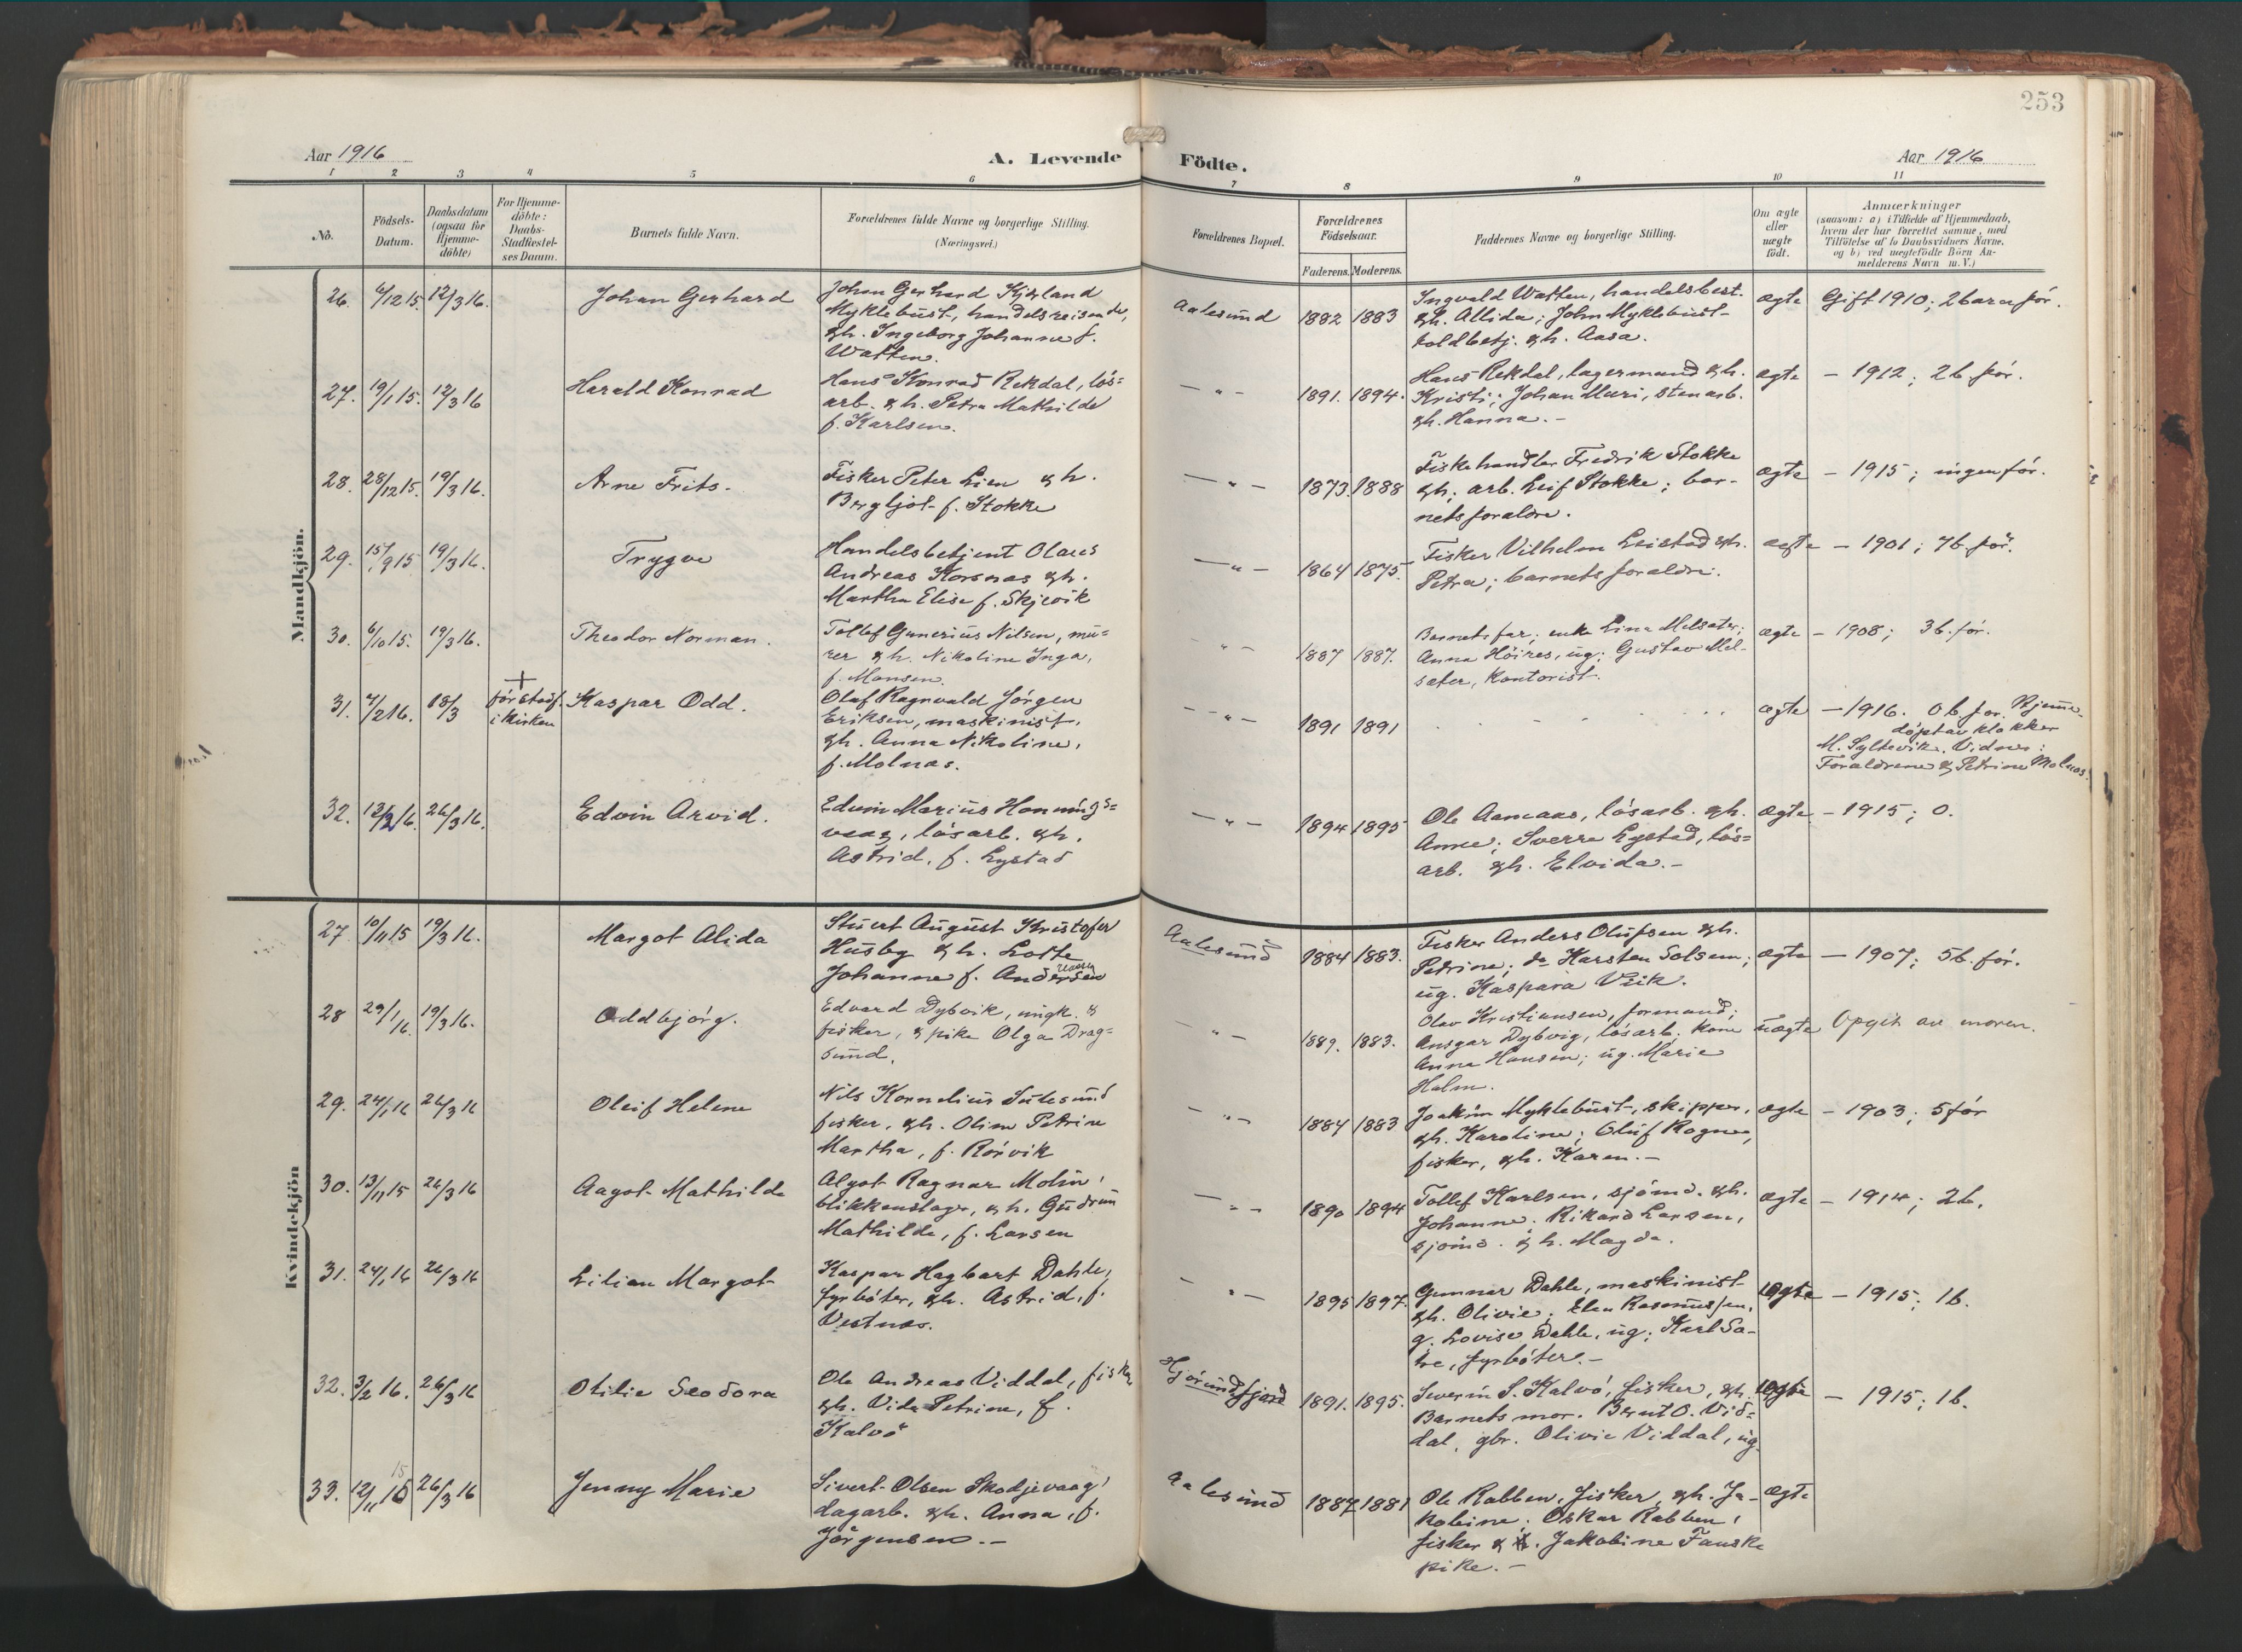 253
Aar 1916
A. Levende
Födte.
Aar 1916
1 2 3 4 5 6 7 8 9 10 11
No.
Födsels-
Datum.
Daabsdatum
(ogsaa for
Hjemme-
döbte)
For Hjemme-
döbte:
Daabs-
Stadfæstel-
ses Datum.
Barnets fulde Navn.
Forældrenes fulde Navne og borgerlige Stilling.
(Næringsvei.)
Forældrenes Bopæl.
Forældrenes
Födselsaar.
Faderens. Moderens.
Faddernes Navne og borgerlige Stilling.
Om ægte
eller
uægte
födt.
Anmærkninger
(saasom: a) i Tilfælde af Hjemmedaab,
hvem der har forrettet samme, med
Tilföielse af to Daabsvidners Navne.
og b) ved uægtefödte Börn An-
melderens Navn m.V.)
Mandkjön.
26. 6/12 15. 12/3 16. Johan Gerhard
Johan Gerhard Kjersland
Myklebust, handelsreisende,
&h. Ingeborg Johanne f.
Watten.
Aalesund 1882 1883
Ingvald Watten, handelsbest.
&h. Allida; John Myklebust-
toldbetj. &h. Aasa.
ægte Gift 1910; 2 barn før.
27. 19/1 15. 12/3 16 Harald Konrad
Hans Konrad Rekdal, løs=
arb. &h. Petra Mathilde
f. Karlsen.
— " — 1891. 1894.
Hans Rekdal, lagermand &h.
Kristi; Johan Muri, stenarb.
&h. Hanna. -
ægte — 1912; 2 b. før.
28. 28/12 15. 19/3 16. Arne Frits.
Fisker Peter Lien &h.
Bergljot f. Stokke
— " — 1873. 1888
Fiskehandler Fredrik Stokke
&h; arb. Leif Stokke; bar-
nets forældre.
ægte — 1915; ingen før.
29. 15/9 15 19/3 16. Trygve
Handelsbetjent Olaus
Andreas Korsnæs &h.
Martha Elise f. Skjevik
— " — 1864 1875.
Fisker Vilhelm Leistad &h.
Petra; barnets forældre.
ægte — 1901; 7 b. før.
30. 6/10 15. 19/3 16. Theodor Norman.
Tollef Gunerius Nilsen, mu=
rer &h. Nikoline Inga,
f. Monsen.
" — 1887 1887.
Barnets far; enke Lina Melsæter;
Anna Höines, ug; Gustav Mel-
sæter, kontorist.
ægte — 1908; 3 b. før.
31. 7/2 16. 18/3 + før stadf. i kirken Kaspar Odd.
Olaf Ragnvald Jørgen
Eriksen, maskinist,
&h. Anna Nikoline,
f. Molnæs.
— " — 1891 1891
ægte — 1916. 0 b. før. Hjemme-
døpt av klokker
M. Syltevik. Vidner:
Forældrene & Petrine Molnæs.
32. 12/2 16. 26/3 16. Edvin Arvid.
Edvin Marius Honnings=
vaag, løsarb. &h.
Astrid, f. Lystad
— " — 1894 1895
Ole Aamaas, løsarb. &h.
Anne; Sverre Lystad, løs=
arb. &h. Elvida. -
ægte — 1915; 0.
Kvindekjön
27 10/11 15 19/3 16. Margot Alida
Stuert August Kristofer
Husby &h. Lotte
Johanne f. Andersen
Aalesund 1884 1883.
Fisker Anders Olufsen &h.
Petrine; do Karsten Solsem;
ug. Kaspara Vik.
ægte — 1907; 5 b. før.
28 29/1 16. 19/3 16. Oddbjørg.
Edvard Dybvik, ungk. &
fisker, & pike Olga Drag=
sund.
" — 1889. 1883.
Olav Kristiansen, formand;
Ansgar Dybvig, løsarb; kone
Anna Hansen; ug. Marie
Holm.
uægte Opgit av moren.
29. 24/1 16 26/3 16 Oleif Helene
Nils Kornelius Sulesund
fisker, &h. Oline Petrine
Martha, f. Rørvik
— " — 1884 1883
Joakim Myklebust, skipper,
&h. Karoline; Oluf Rogne,
fisker, &h. Karen. -
ægte — 1903; 5 før
30. 13/11 15 26/3 16 Aagot Mathilde
Algot Ragnar Molin,
blikkenslager, &h. Gudrun
Mathilde, f. Larsen
— " — 1890 1894
Tollef Karlsen, sjømd. &h.
Johanne; Rikard Larsen,
sjømd. &h. Magda.
ægte — 1914; 2 b.
31. 24/1 16 26/3 16 Lilian Margot
Kaspar Hagbart Dahle,
fyrbøter, &h. Astrid, f.
Vestnæs.
— " — 1895 1897.
Gunnar Dahle, maskinist
&h. Olivie; Elen Rasmussen,
g. Lovise Dahle, ug; Karl Sæ-
tre, fyrbøter. -
ægte — 1915; 1 b.
32. 3/2 16. 26/3 16 Otilie Seodora
Ole Andreas Viddal, fisker
&h. Vida Petrine, f.
Kalvø
Hjørundfjord 1891. 1895.
Severin S. Kalvø, fisker, &h.
Barnets mor. Bernt O. Vid=
dal, gbr. Olivie Viddal, ug.
ægte — 1915; 1 b.
33. 12/11 16 15 26/3 16 Jenny Marie
Sivert Olsen Skodjevaag,
dagarb. &h. Anna, f.
Jørgensen. -
Aalesund 1887 1881
Ole Rabben, fisker, &h. Ja-
kobine; Oskar Rabben,
fisker & Jakobine Fauske
pike. -
ægte